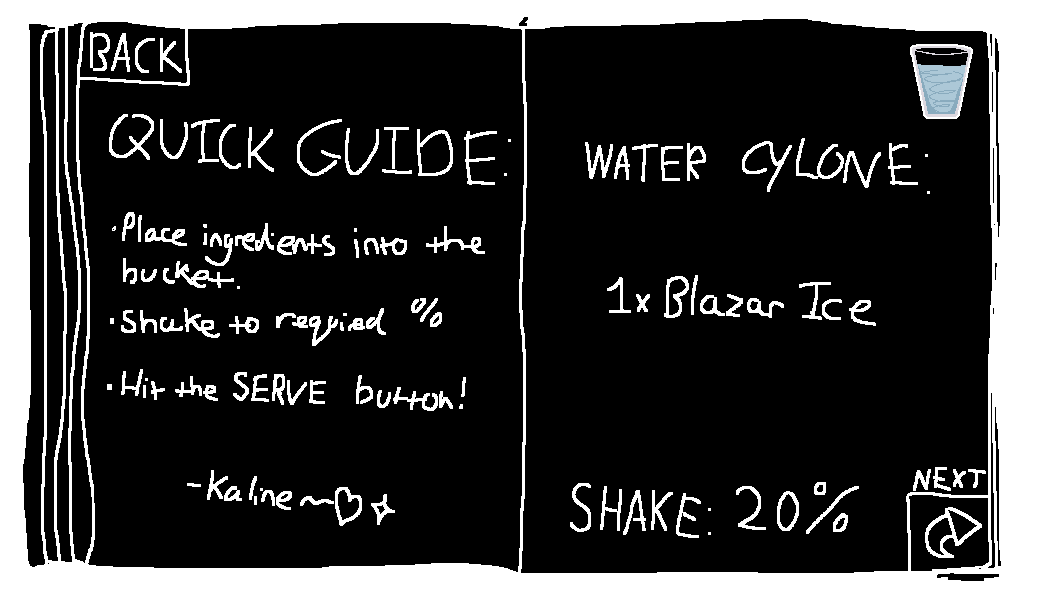 BACK
QUICK GUIDE:
·Place ingredients into the
bucket.
·Shake to required %
·Hit the SERVE button!
-Kaline~♡✧
WATER CYLONE:
1x Blazar Ice
SHAKE: 20%
NEXT